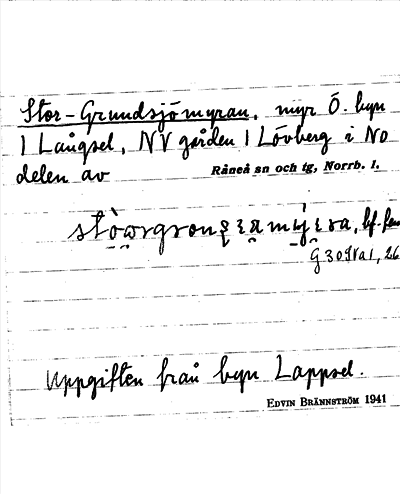 Stor-Grundsjömyran, myr Ö. byn
1 Långsel, NV gården 1 Lövberg i NO
delen av Råneå sn och tg, Norrb. l.
bf. fem
Uppgiften från byn Lappsel.
EDVIN BRÄNNSTRÖM 1941